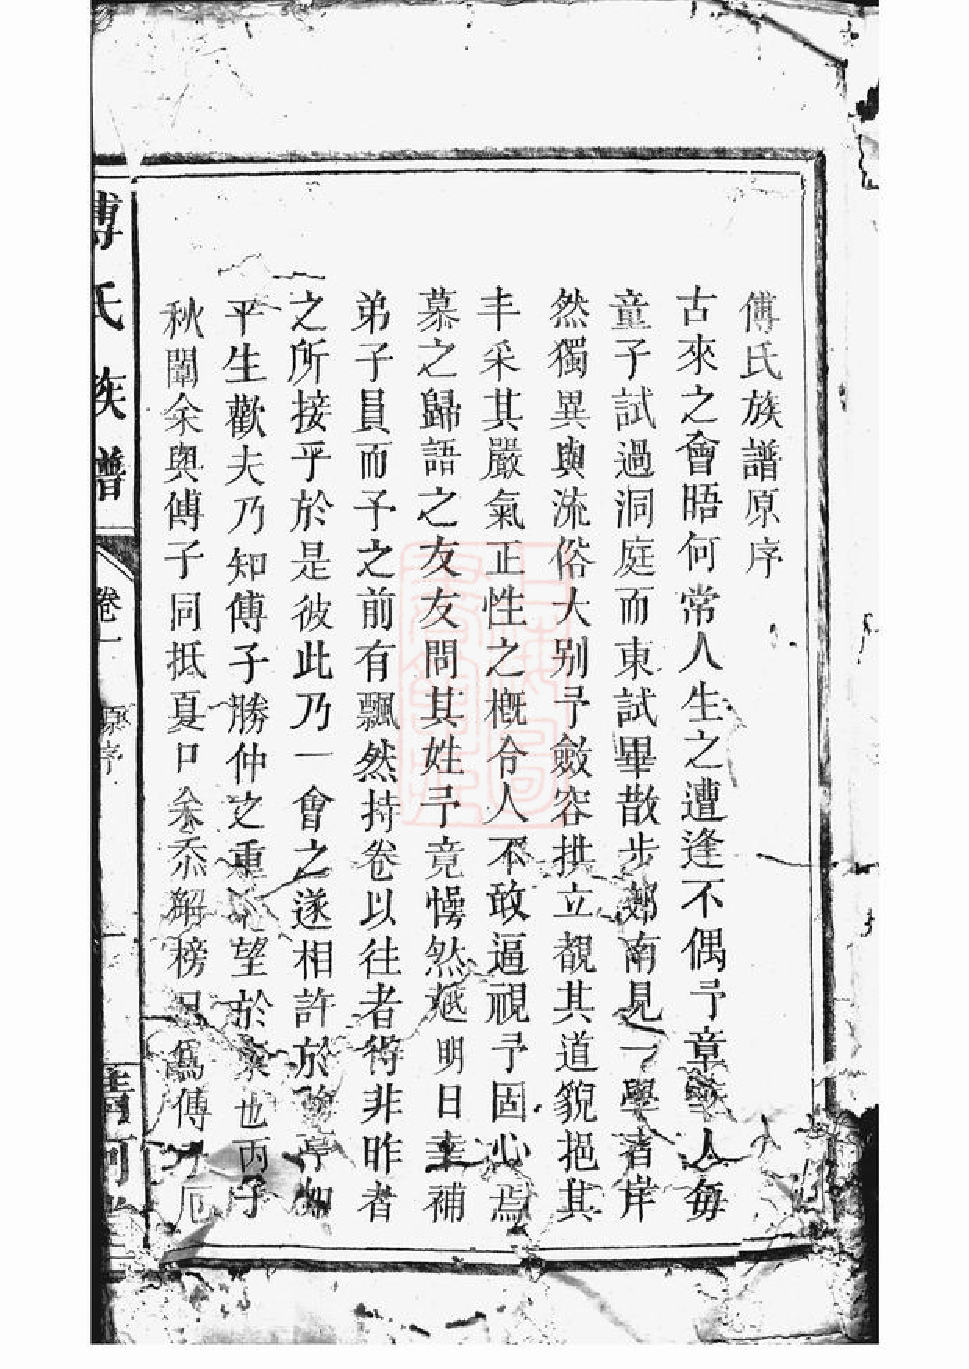 傅氏族譜原序
古來之會晤何常人生之遭逢不偶予章人每
童子試過洞庭而東試畢散步郊南見一學者岸
然獨異與流俗大別予斂容拱立覩其道貌挹其
丰采其嚴氣正性之概令人不敢逼視予固心焉
慕之歸語之友友問其姓予竟愕然越明日幸補
弟子員而予之前有飄然持卷以往者得非昨者
之所接乎於是彼此乃一會之遂相許於亭如
平生歡夫乃知傅子勝仲之重望於也丙子
秋闈余與傅子同抵夏口余忝榜爲傅子厄
傅氏族譜
卷一
原序
一
清河堂